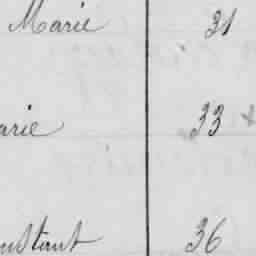 Marie 31
arie 33 x
nstant 36